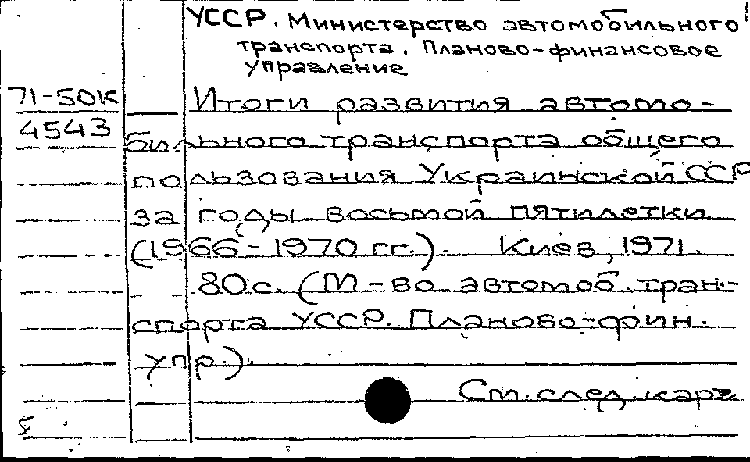 УССР. Министерство автомобильного
транспорта. Планово-финансовое
управление
71-50к Итоги развития автомо-
4543 бильного транспорта общего
пользования Украинской ССР
за годы восьмой пятилетки
(1966-1970 гг.). Киев, 1971.
80с. (М-во автомоб. тран-
спорта УССР. Планово-фин.
упр.).
См. след. карт.